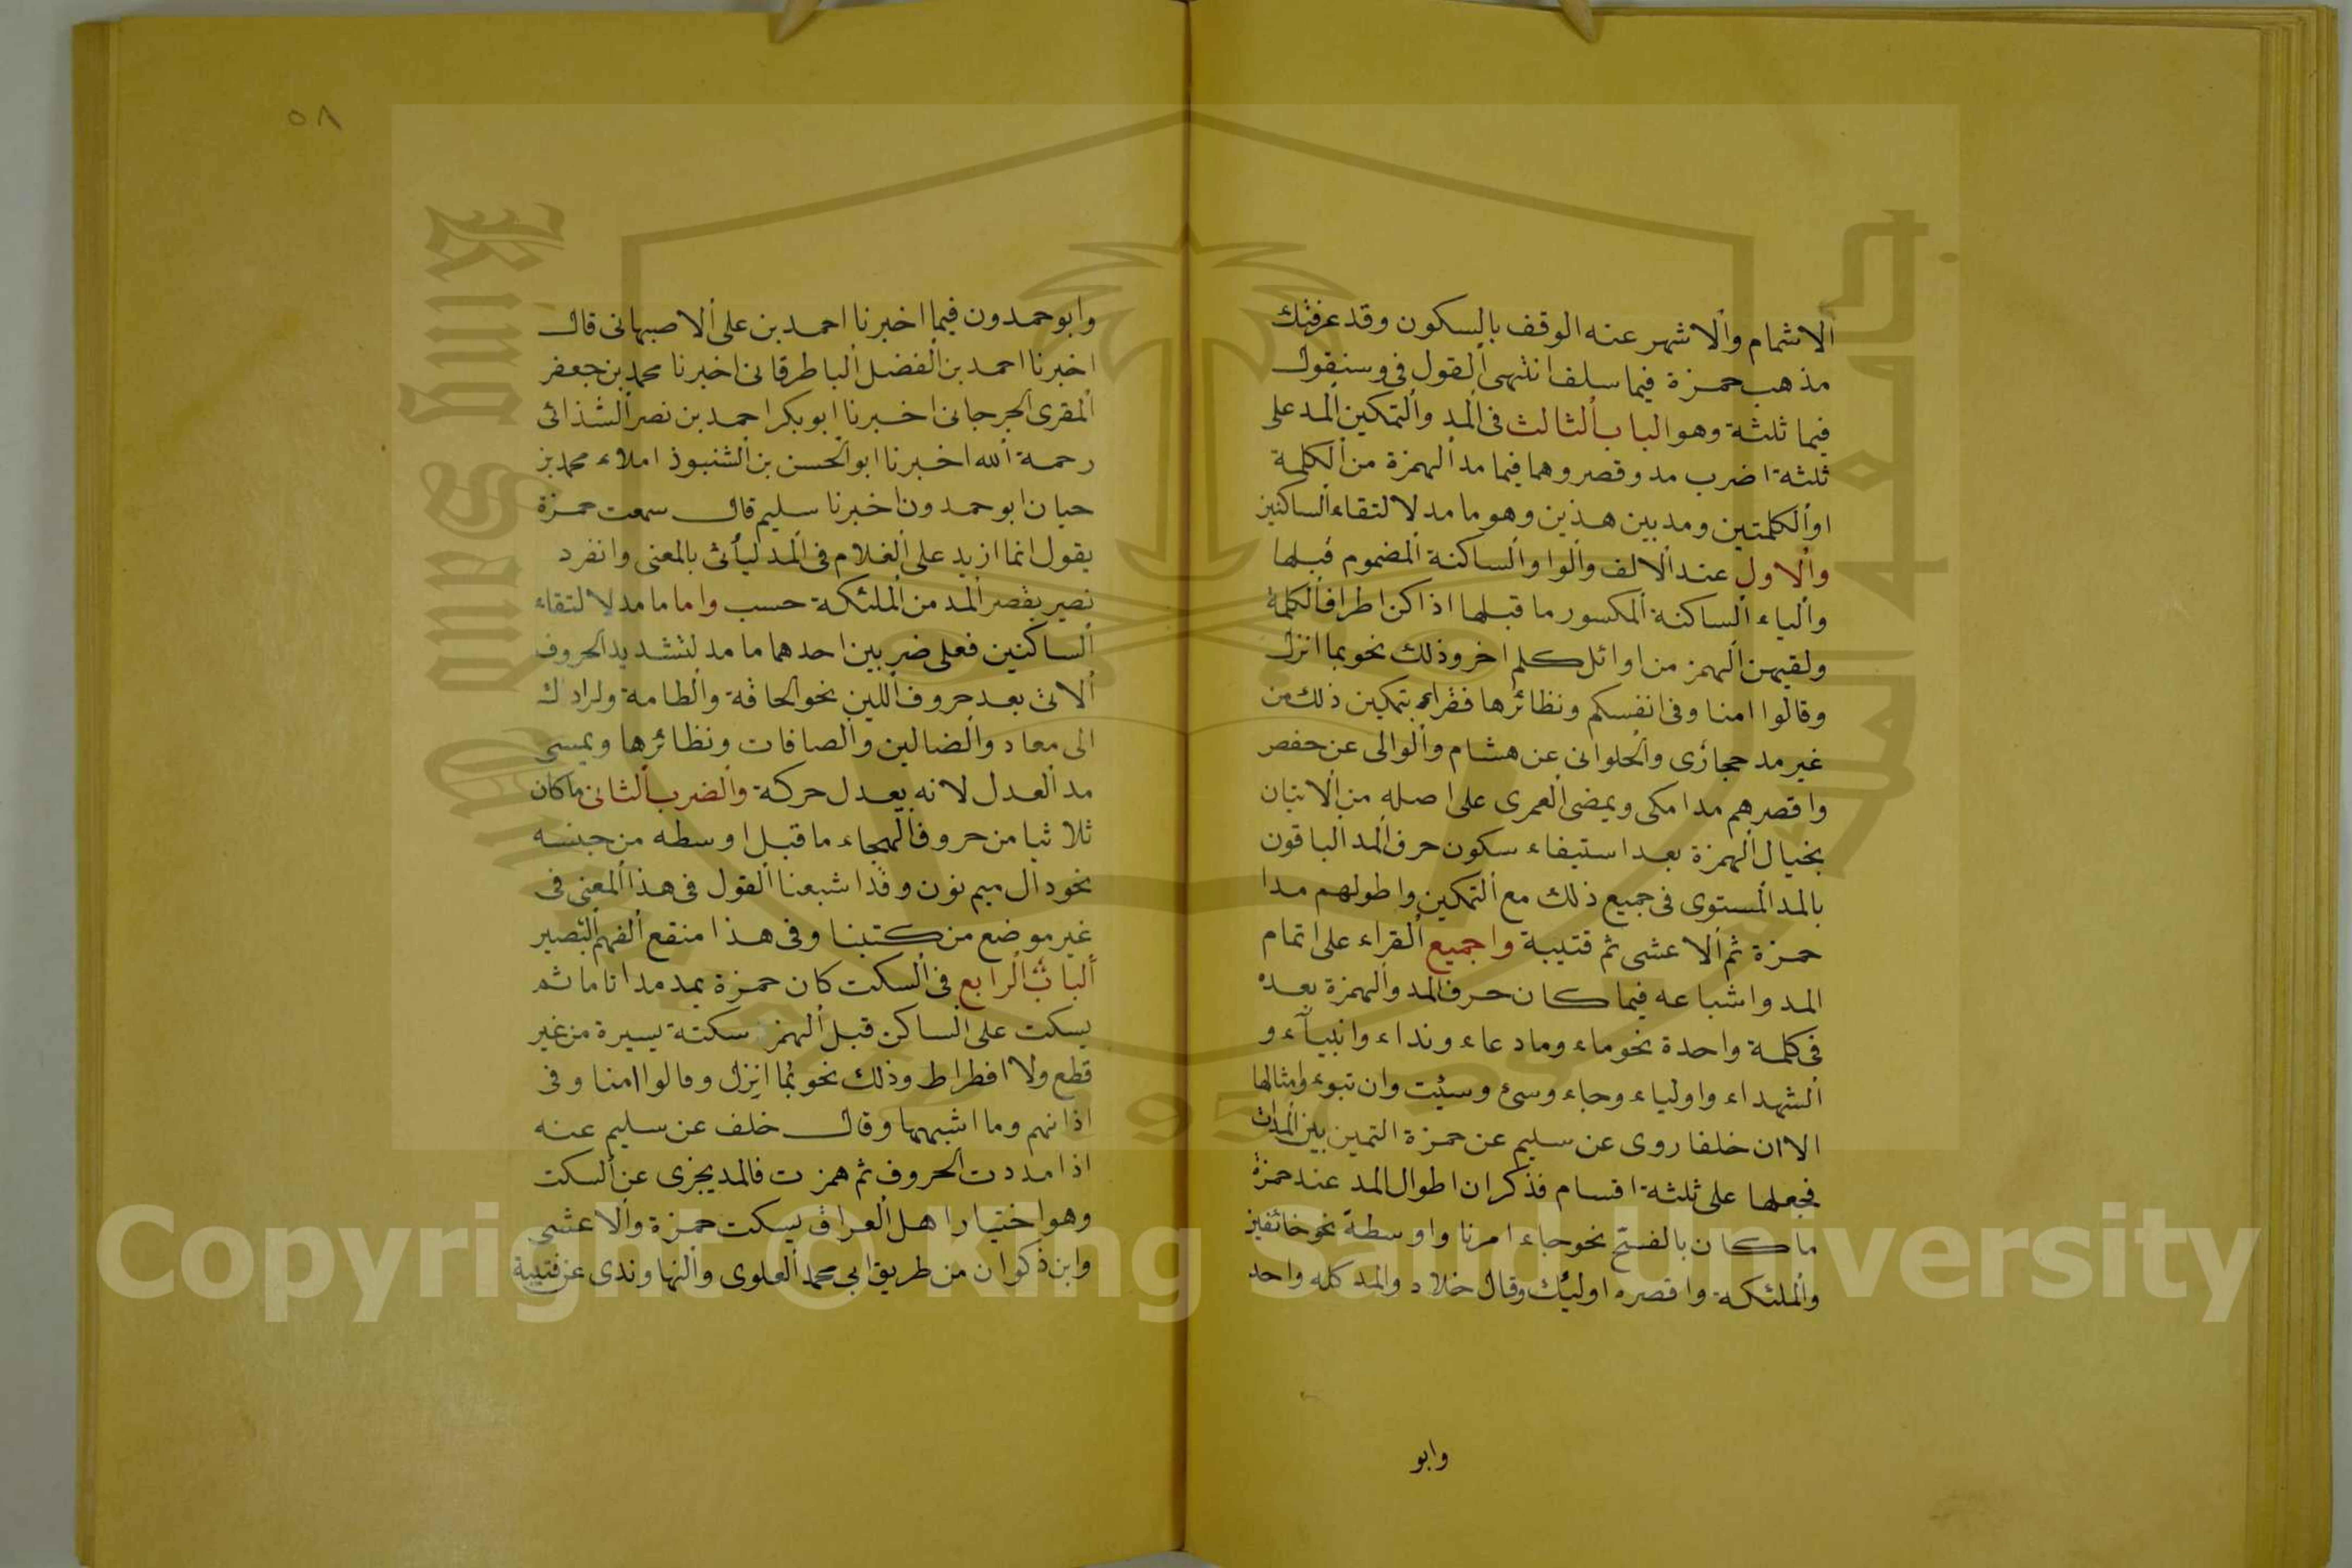 الاشمام والاشهر عنه الوقف بالسكون وقد عرفتك
مذهب حمزة فيما سلف انتهى القول فى وسنقول
فيما ثلثة وهو الباب الثالث فى المد والتمكين المد على
ثلثة اضرب مد وقصر وهما فيما مد الهمزة من الكلمة
او الكلمتين ومد بين هذين وهو ما مد لالتقاء الساكنين
والاول عند الالف والواو الساكنة المضموم قبلها
والياء الساكنة المكسور ما قبلها اذا كن اطراف الكلمة
ولقيهن الهمز من اوائل كلم اخر وذلك نحو بما انزل
وقالوا امنا وفى انفسكم ونظائرها فقراه بتمكين ذلك من
غير مد حجازى والحلوانى عن هشام والوالى عن حفص
واقصرهم مدا مكى ويمضى العمرى على اصله من الاتيان
بخيال الهمزة بعد استيفاء سكون حرف المد الباقون
بالمد المستوى فى جميع ذلك مع التمكين واطولهم مدا
حمزة ثم الاعشى ثم قتيبة واجميع القراء على اتمام
المد واشباعه فيما كان حرف المد والهمزة بعده
فى كلمة واحدة نحو ماء وماد عاء ونداء وانبيآء و
الشهداء واولياء وجاء وسئ وسيئت وان تبوء وامثالها
الا ان خلفا روى عن سليم عن حمزة التميز بين المدات
فجعلها على ثلثة اقسام فذكر ان اطوال المد عند حمزة
ما كان بالفتح نحو جاء امرنا واوسطة نحو خائفين
والملئكة واقصره اوليئك وقال خلاد والمد كله واحد
وابو
٥٨
وابو حمدون فيما اخبرنا احمد بن على الاصبهانى قال
اخبرنا احمد بن الفضل الباطرقانى اخبرنا محمد بن جعفر
المقرى الجرجانى اخبرنا ابو بكر احمد بن نصر الشذائى
رحمة الله اخبرنا ابو الحسن بن الشنبوذ املاء محمد بن
حيان ابو حمدون اخبرنا سليم قال سمعت حمزة
يقول انما ازيد على الغلام فى المد ليأتى بالمعنى وانفرد
نصير بقصر المد من الملئكة حسب واما ما مد لالتقاء
الساكنين فعلى ضربين احدهما ما مد لتشديد الحروف
الاتى بعد حروف اللين نحو الحاقة والطامة ولرادك
الى معاد والضالين والصافات ونظائرها ويسمى
مد العدل لانه يعدل حركة والضرب الثانى ما كان
ثلاثيا من حروف الهجاء ما قبل اوسطه من جنسه
نحو دال ميم نون وقد اشبعنا القول فى هذا المعنى فى
غير موضع من كتبنا وفى هذا منقع الفهم البصير
الباب الرابع فى السكت كان حمزة يمد مدا تاما ثم
يسكت على الساكن قبل الهمز سكتة يسيرة من غير
قطع ولا افطراط وذلك نحو بما انزل وقالوا امنا وفى
اذانهم وما اشبهها وقال خلف عن سليم عنه
اذا مددت الحروف ثم همزت فالمد يجزى عن السكت
وهو اختيار اهل العراق يسكت حمزة والاعشى
وابن ذكوان من طريق ابى محمد العلوى والنهاوندى عن قتيبة
Copyright © King Saud University
King Saud University
1957